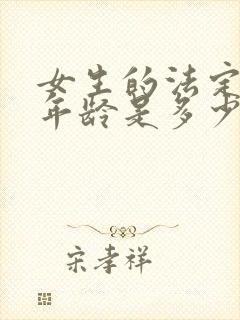 女生的法定
年龄是多少
宋孝祥